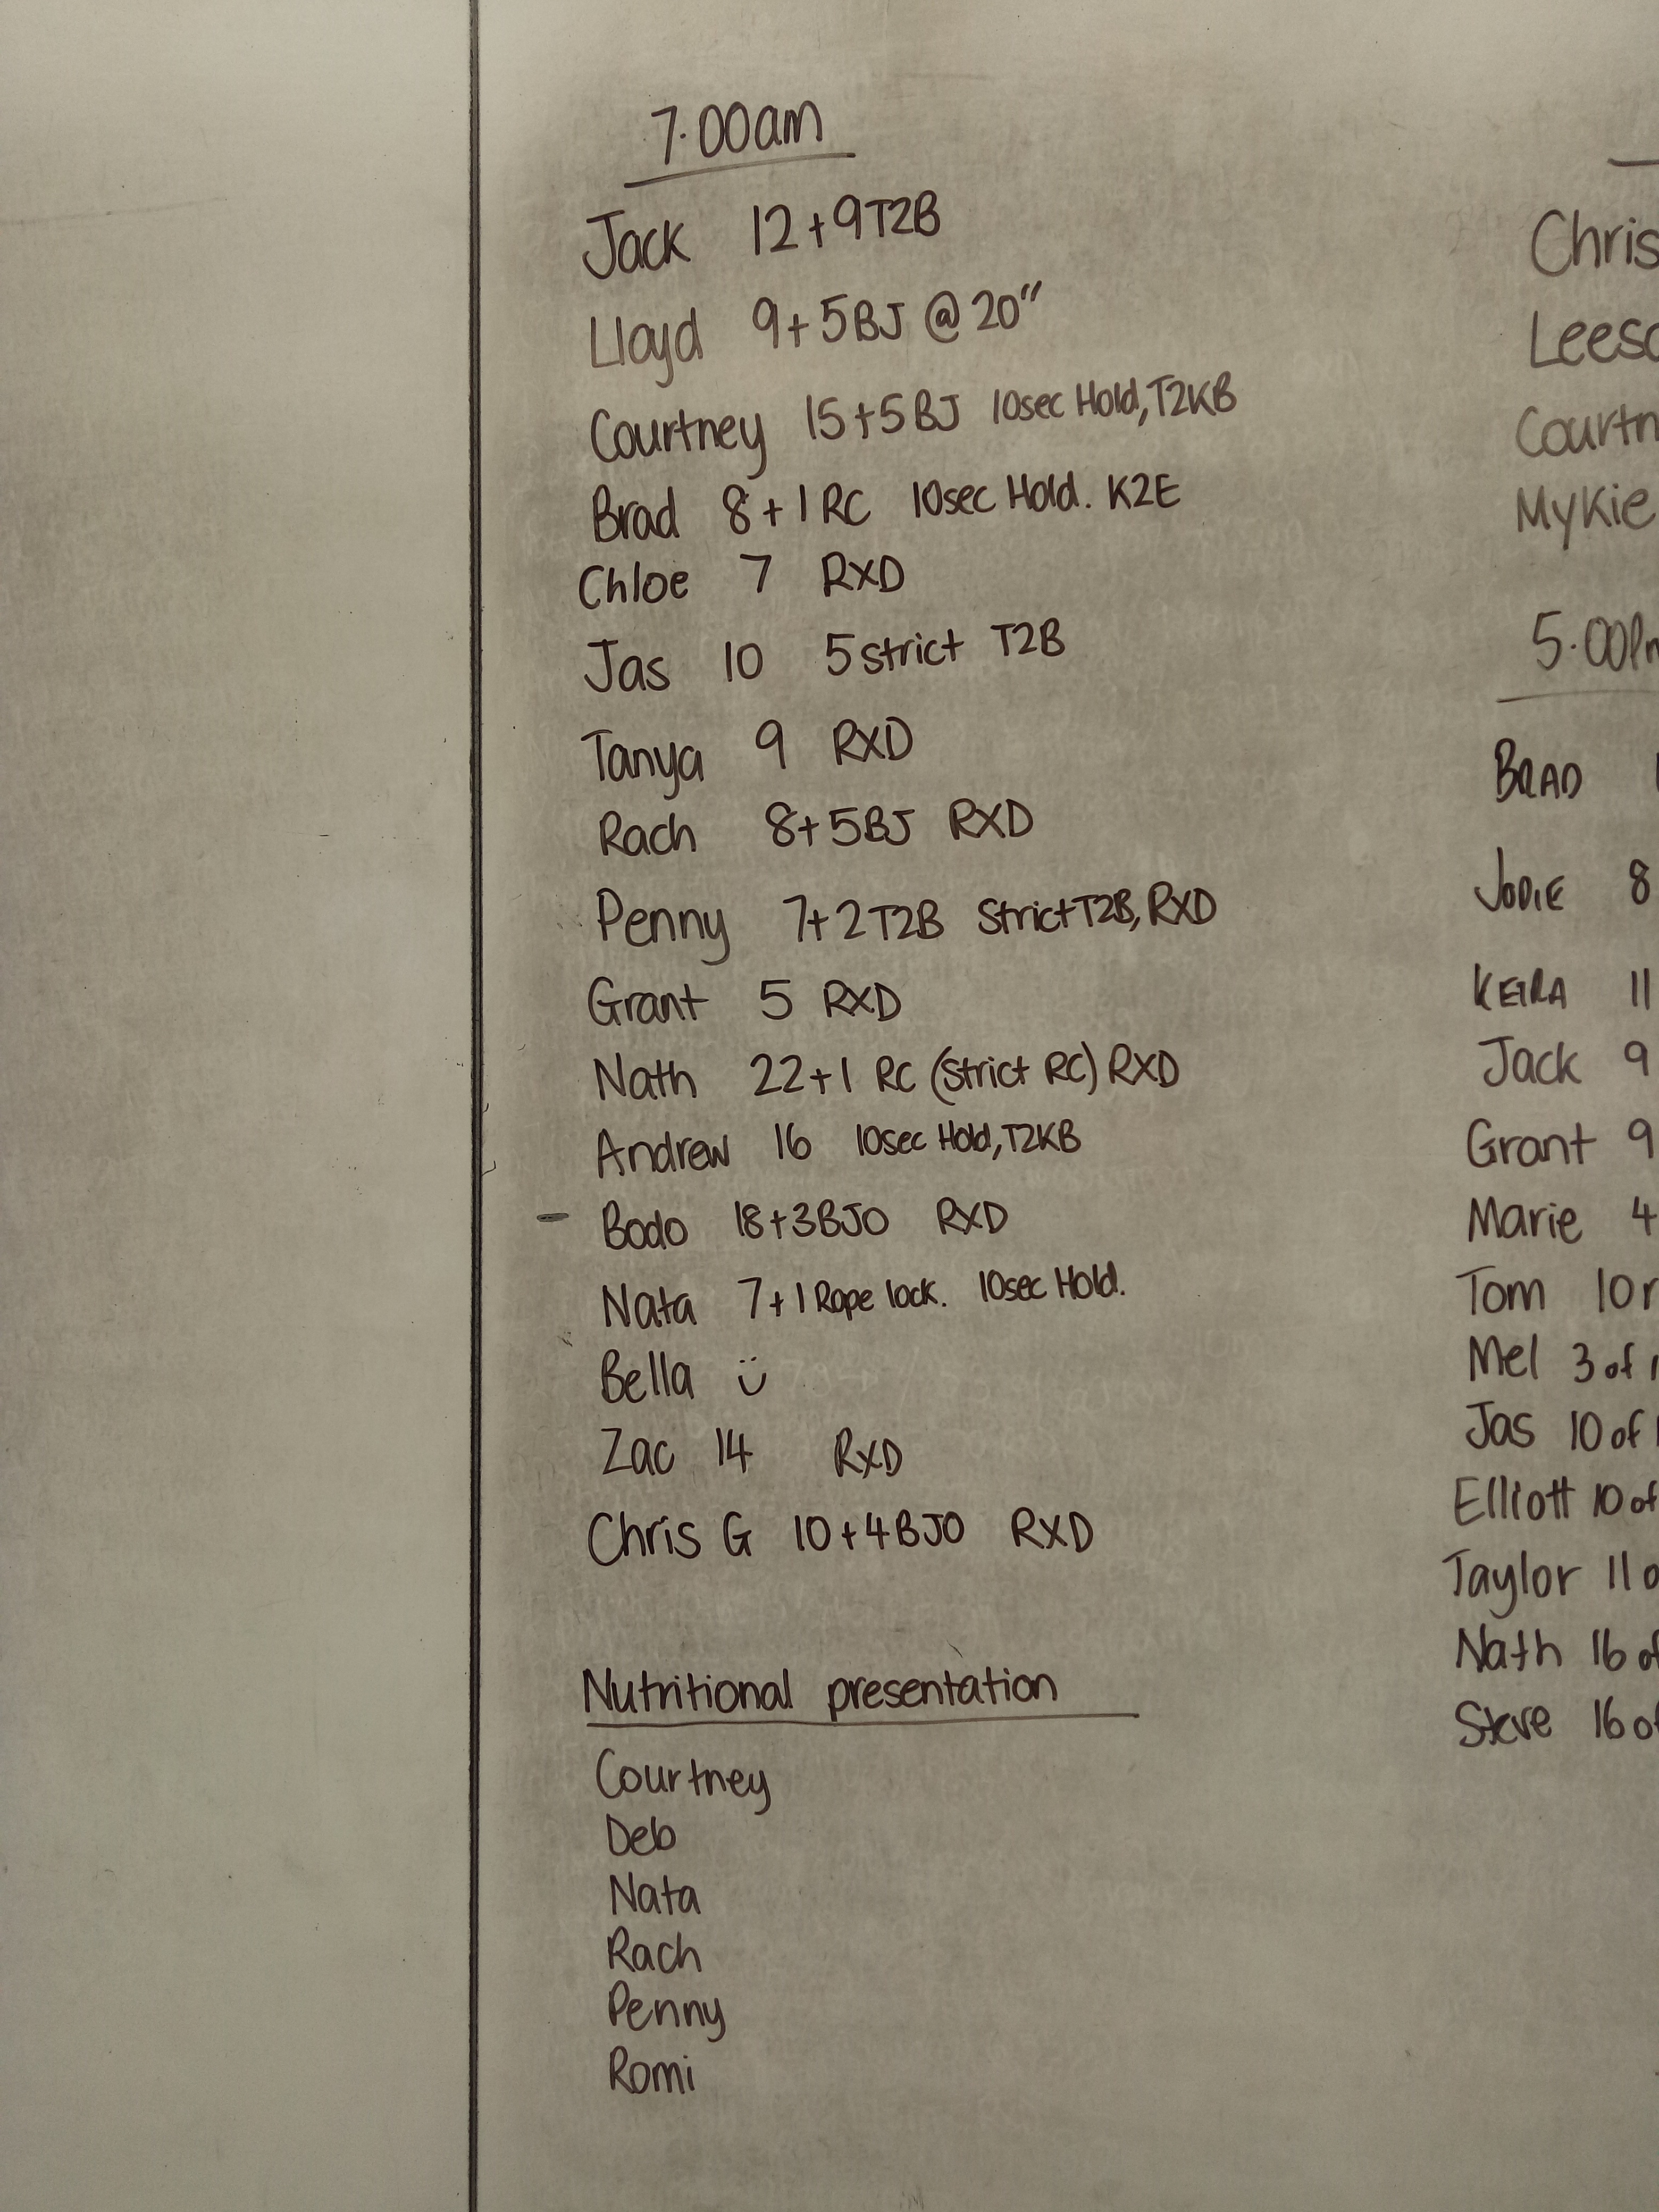 7.00am
Jack 12+9T2B
Lloyd 9+5BJ @ 20"
Courtney 15+5BJ 10sec Hold, T2KB
Brad 8+1 RC 10sec Hold. K2E
Chloe 7 RXD
Jas 10 5 strict T2B
Tanya 9 RXD
Rach 8+5BJ RXD
Penny 7+2T2B Strict T2B, RXD
Grant 5 RXD
Nath 22+1 RC (Strict RC) RXD
Andrew 16 10sec Hold, T2KB
- Bodo 18+3BJO RXD
Nata 7+1 Rope lock. 10sec Hold.
Bella Ü
Zac 14 RXD
Chris G 10+4BJO RXD
Nutritional presentation
Courtney
Deb
Nata
Rach
Penny
Romi
Chris
Courtn
Mykie
5.00P
BRAD
JODIE 8
KEIRA 11
Jack 9
Grant 9
Marie 4
Tom 10 r
Mel 3 of
Jas 10 of
Elliott 10 of
Taylor 11 o
Nath 16 of
Steve 16 of